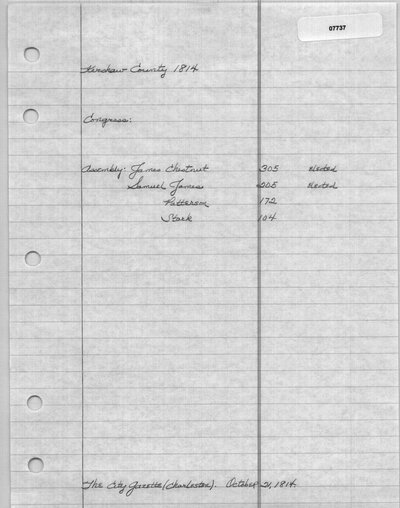 07737
Kershaw County 1814
Congress:
Assembly: James Chestnut 305 elected
Samuel Jones 205 elected
Patterson 172
Stark 104
The City Gazette (Charleston). October 21, 1814